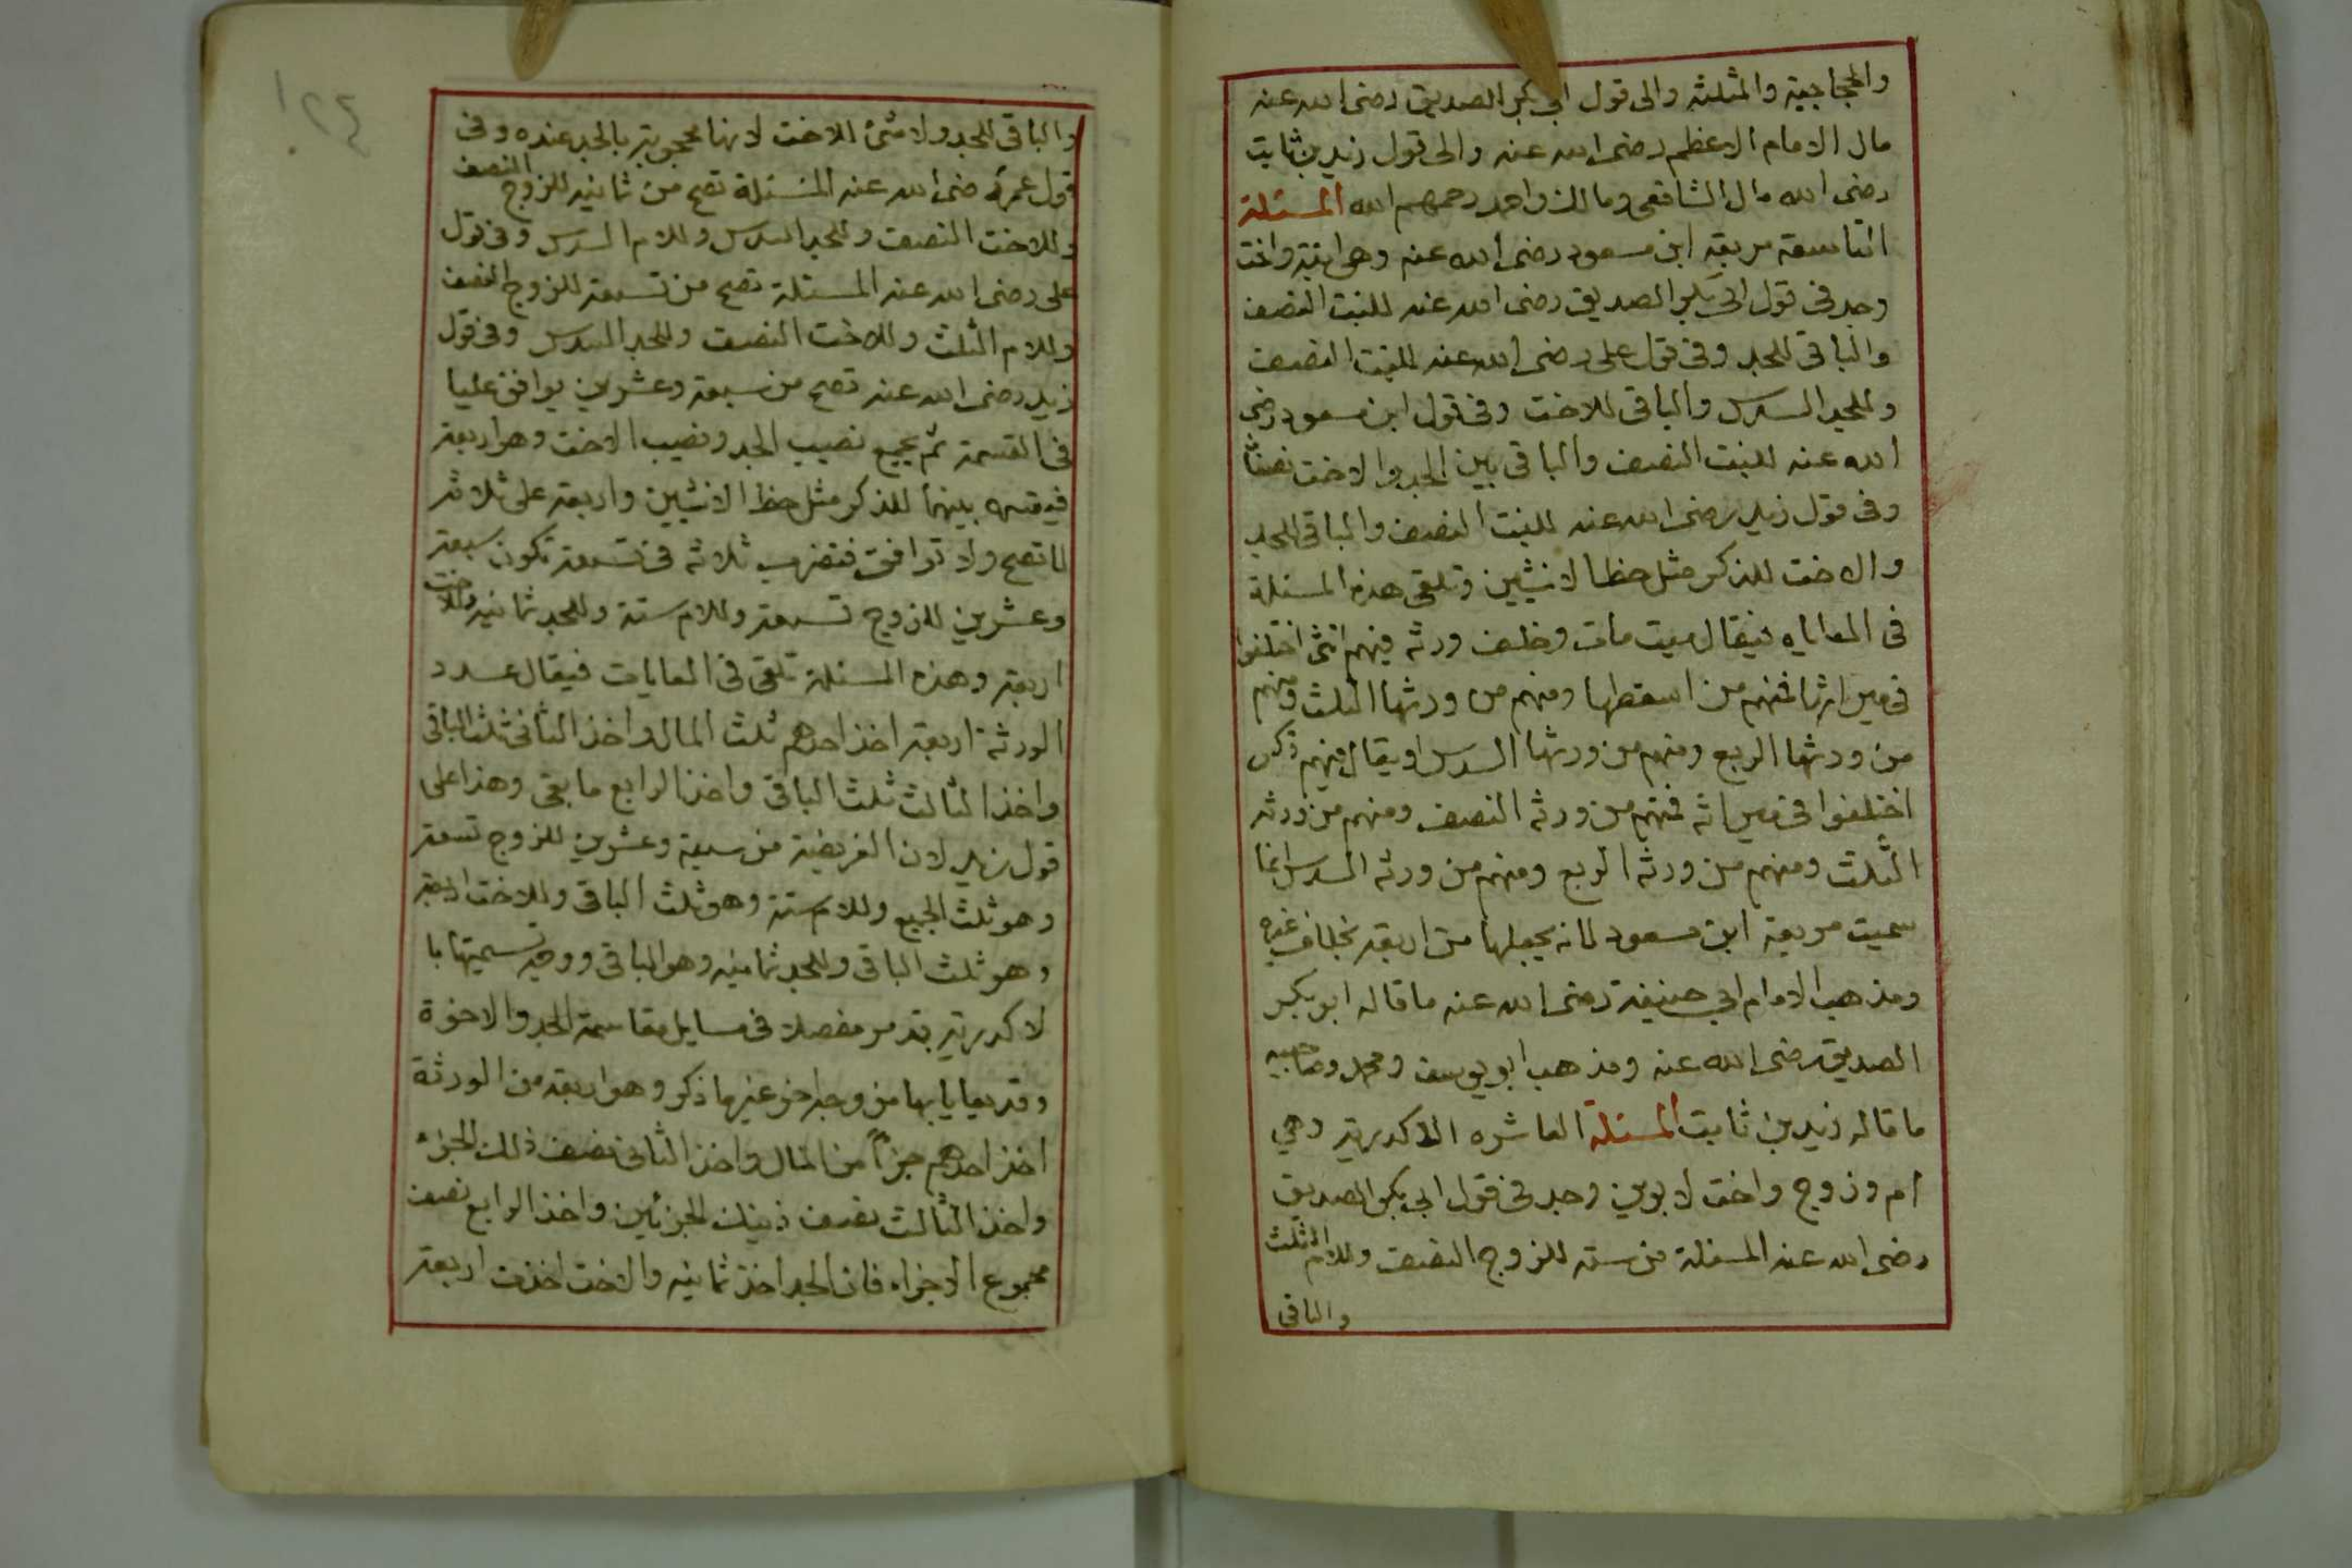 والحجاجية والمثلثة والى قول ابي بكر الصديق رضى الله عنه
مال الامام الاعظم رضى الله عنه والى قول زيد بن ثابت
رضى الله مال الشافعى ومالك واحمد رحمهم الله المسئلة
التاسعة مربعة ابن مسعود رضى الله عنه وهى ابنة واخت
وجد فى قول ابى بكر الصديق رضى الله عنه للبنت النصف
والباقى للجد وفى قول على رضى الله عنه للبنت النصف
وللجد السدس والباقى للاخت وفى قول ابن مسعود رضى
الله عنه للبنت النصف والباقى بين الجد والاخت نصفان
وفى قول زيد رضى الله عنه للبنت النصف والباقى للجد
والاخت للذكر مثل حظ الانثيين وتلقى هذه المسئلة
فى المعاياه فيقال ميت مات وخلف ورثه فيهم انثى اختلفوا
فى ميراثها فمنهم من اسقطها ومنهم من ورثها الثلث ومنهم
من ورثها الربع ومنهم من ورثها السدس او يقال فيهم ذكر
اختلفوا فى ميراثه فمنهم من ورثه النصف ومنهم من ورثه
الثلث ومنهم من ورثه الربع ومنهم من ورثه السدس انما
سميت مربعة ابن مسعود لانه يجعلها من اربعة بخلاف غيره
ومذهب الامام ابي حنيفة رضى الله عنه ما قاله ابو بكر
الصديق رضى الله عنه ومذهب ابو يوسف ومحمد وصاحبيه
ما قاله زيد بن ثابت المسئلة العاشره الاكدرية وهي
ام وزوج واخت لابوين وجد فى قول ابى بكر الصديق
رضى الله عنه المسئلة من سته للزوج النصف وللام الثلث
والباقى
١٢٤
والباقى للجد ولا شئ للاخت لانها محجوبة بالجد عنده وفى
قول عمر رضى الله عنه المسئلة تصح من ثمانيه للزوج النصف
وللاخت النصف وللجد السدس وللام السدس وفى قول
على رضى الله عنه المسئلة تصح من تسعة للزوج النصف
وللام الثلث وللاخت النصف وللجد السدس وفى قول
زيد رضى الله عنه تصح من سبعة وعشرين يوافق عليا
فى القسمة ثم يجمع نصيب الجد ونصيب الاخت وهو اربعة
فيقتسمه بينهما للذكر مثل حظ الانثيين واربعة على ثلاثة
لا تصح ولا توافق فتضرب ثلاثه فى تسعة تكون سبعة
وعشرين للزوج تسعة وللام ستة وللجد ثمانيه وللاخت
اربعة وهذه المسئلة تلقى فى المعايات فيقال عدد
الورثة اربعة اخذ احدهم ثلث المال واخذ الثانى ثلث الباقى
واخذ الثالث ثلث الباقى واخذ الرابع ما بقى وهذا على
قول زيد لان الفريضة من سبعة وعشرين للزوج تسعة
وهو ثلث الجميع وللام ستة وهو ثلث الباقى وللاخت اربعة
وهو ثلث الباقى وللجد ثمانيه وهو الباقى ووجه تسميتها با
لاكدرية قد مر مفصلا فى مسايل مقاسمة الجد والاخوة
وقد يعايا بها من وجه اخر غير ما ذكر وهو اربعة من الورثة
اخذ احدهم جزأ من المال واخذ الثانى نصف ذلك الجزء
واخذ الثالث نصف ذينك الجزئين واخذ الرابع نصف
مجموع الاجزاء فان الجد اخذ ثمانيه والاخت اخذت اربعة